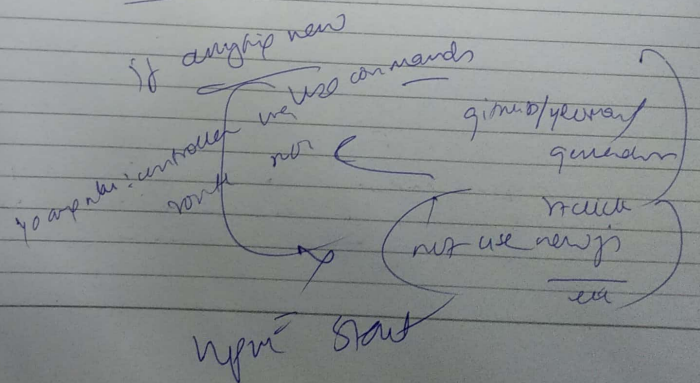 if anything new
use commands
yo angular:controller user
not
route
github/yeoman
generator
not use new js
npm start